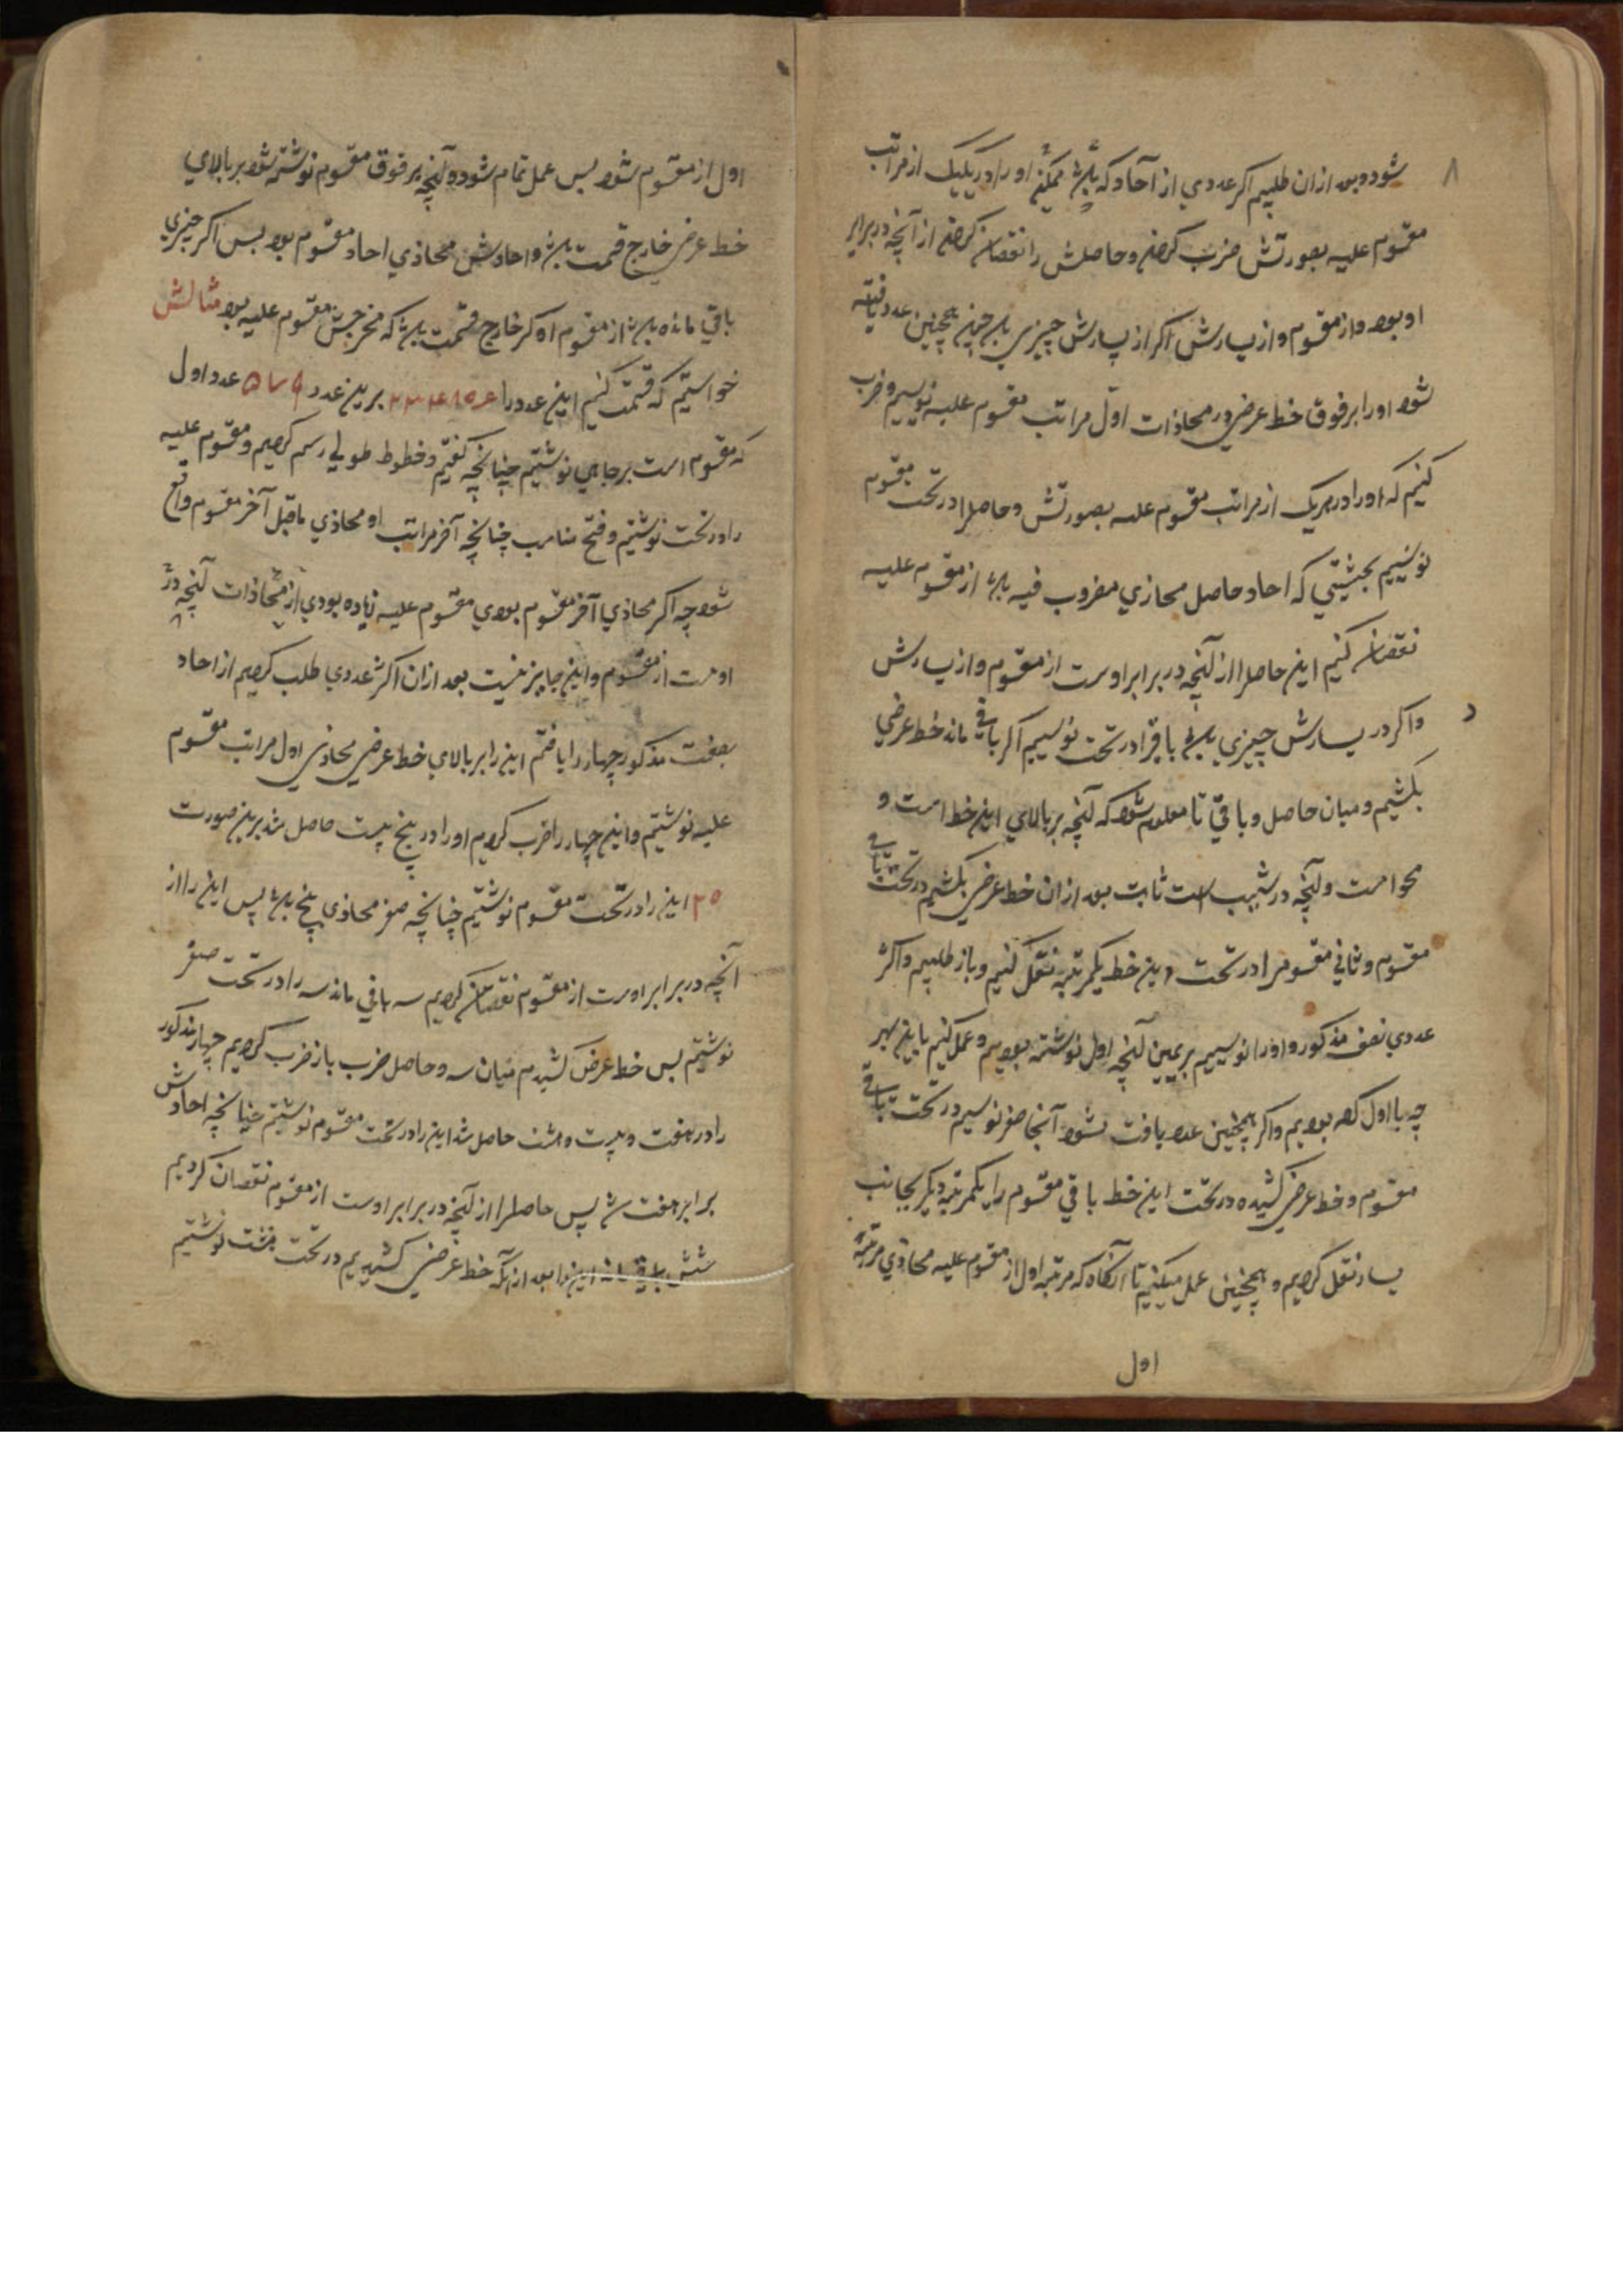 ۸
شود و بعد ازان طلبیم اکثر عددی از آحاد که باشد ممکن او را در یکیک از مراتب
مقسوم علیه بصورتش ضرب کردن و حاصلش را نقصان کردن از آنچه در برابر
او بود از مقسوم و از یسارش اگر از یسارش چیزی باشد چون همچنین عدد یافته
شود او را بر فوق خط عرضی در محاذات اول مراتب مقسوم علیه نویسیم و ضرب
کنیم او را در هریک از مراتب مقسوم علیه بصورتش و حاصلرا در تحت مقسوم
نویسیم بحیثیتی که احاد حاصل محاذی مضروب فیه باشد از مقسوم علیه
نقصان کنیم این حاصلرا از آنچه در برابر اوست از مقسوم و از یسارش
و اگر در یسارش چیزی باشد باقیرا در تحت نویسیم اگر باقی ماند خط عرضی
بکشیم و میان حاصل و باقی تا معلوم شود که آنچه بر بالای این خط است و
محو است و آنچه در شیب است ثابت بعد ازان خط عرضی بکشیم در تحت باقی
مقسوم و ثانی مقسوم را در تحت این خط یکمرتبه نقل کنیم و باز طلبیم و اکثر
عددی بصفت مذکور و اورا نویسیم بر یمین آنچه اول نوشته بودیم و عمل کنیم باین هر
چه با اول کرده بودیم و اگر همچنین عدد یافت نشود آنجا صفر نویسیم در تحت باقی
مقسوم و خط عرضی کشیده در تحت این خط باقی مقسوم را یکمرتبه دیگر بجانب
یسار نقل کردیم و همچنین عمل میکنیم تا آنگاه که مرتبه اول از مقسوم علیه محاذی مرتبه
اول
اول از مقسوم شود پس عمل تمام شود و آنچه بر فوق مقسوم نوشته شود بر بالای
خط عرضی خارج قسمت باشد و احادش محاذی احاد مقسوم بود پس اگر چیزی
باقی مانده باشد از مقسوم او کسر خارج قسمت باشد که مخرجش مقسوم علیه بود مثالش
خواستیم که قسمت کنیم این عدد را برین عدد ۵۷۹ عدد اول
که مقسوم است برجاهی نوشتیم چنانچه گفتیم و خطوط طولی رسم کردیم و مقسوم علیه
را در تحت نوشتیم و فتح مناسب چنانچه آخر مراتب او محاذی ماقبل آخر مقسوم واقع
شود چه اگر محاذی آخر مقسوم بودی مقسوم علیه زیاده بودی از محاذات آنچه در
اوست از مقسوم و این جایز نیست بعد ازان اکثر عددی طلب کردیم از احاد
بصفت مذکور چهار را یافتم این را بر بالای خط عرضی محاذی اول مراتب مقسوم
علیه نوشتیم و این چهار را ضرب کردیم اورا در پنج بیست حاصل شد برین صورت
۲۰ این را در تحت مقسوم نوشتیم چنانچه صفر محاذی پنج باشد پس این را از
آنچه در برابر اوست از مقسوم نقصان کردیم سه باقی ماند سه را در تحت صفر
نوشتیم پس خط عرض کشیدم میان سه و حاصل ضرب باز ضرب کردیم چهار مذکور
را در هفت و بیست و هشت حاصل شد این را در تحت مقسوم نوشتیم چنانچه احادش
برابر هفت شد پس حاصلرا از آنچه در برابر اوست از مقسوم نقصان کردیم
شش باقی ماند این را بعد ازآنکه خط عرضی کشیدیم در تحت هشت نوشتیم